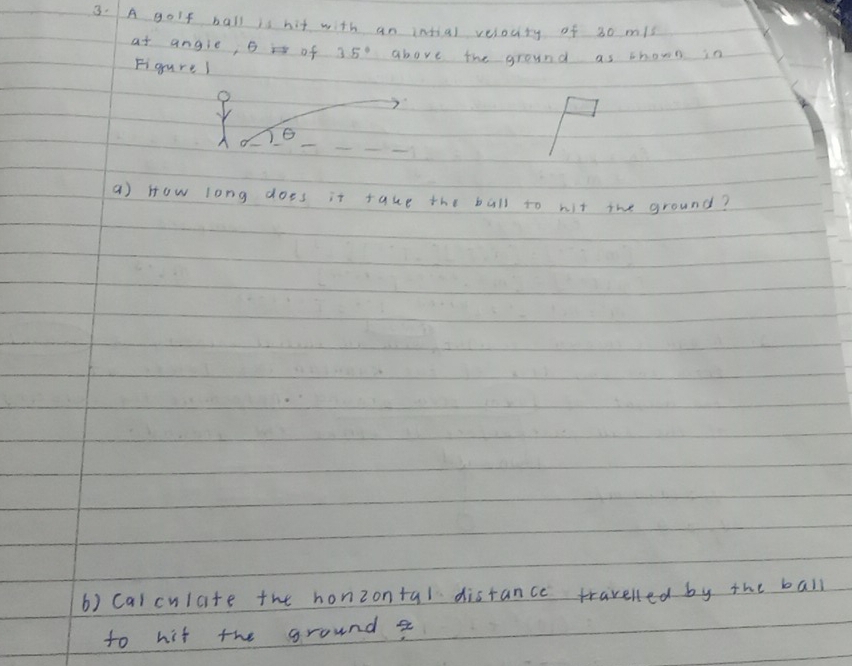 3. A golf ball is hit with an intial velocity of 30 m/s
at angle, θ of 35° above the ground as shown in
Figure 1
θ
a) How long does it take the ball to hit the ground?
b) Calculate the horizontal distance travelled by the ball
to hit the ground ?